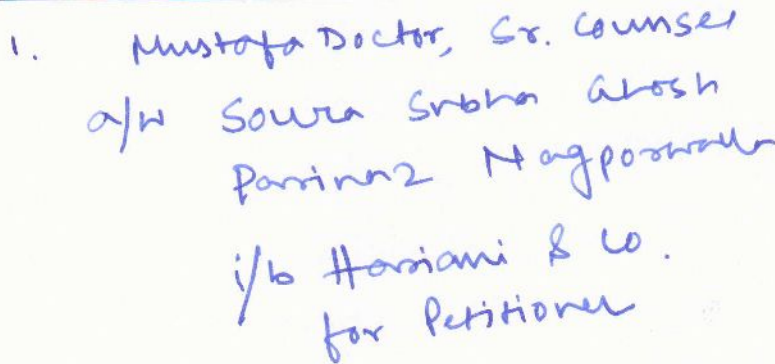 1. Mustafa Doctor, Sr. Counsel
a/w Soura Subha Ghosh
Parinaz Nagporwalla
i/b Hariani & Co.
for Petitioner